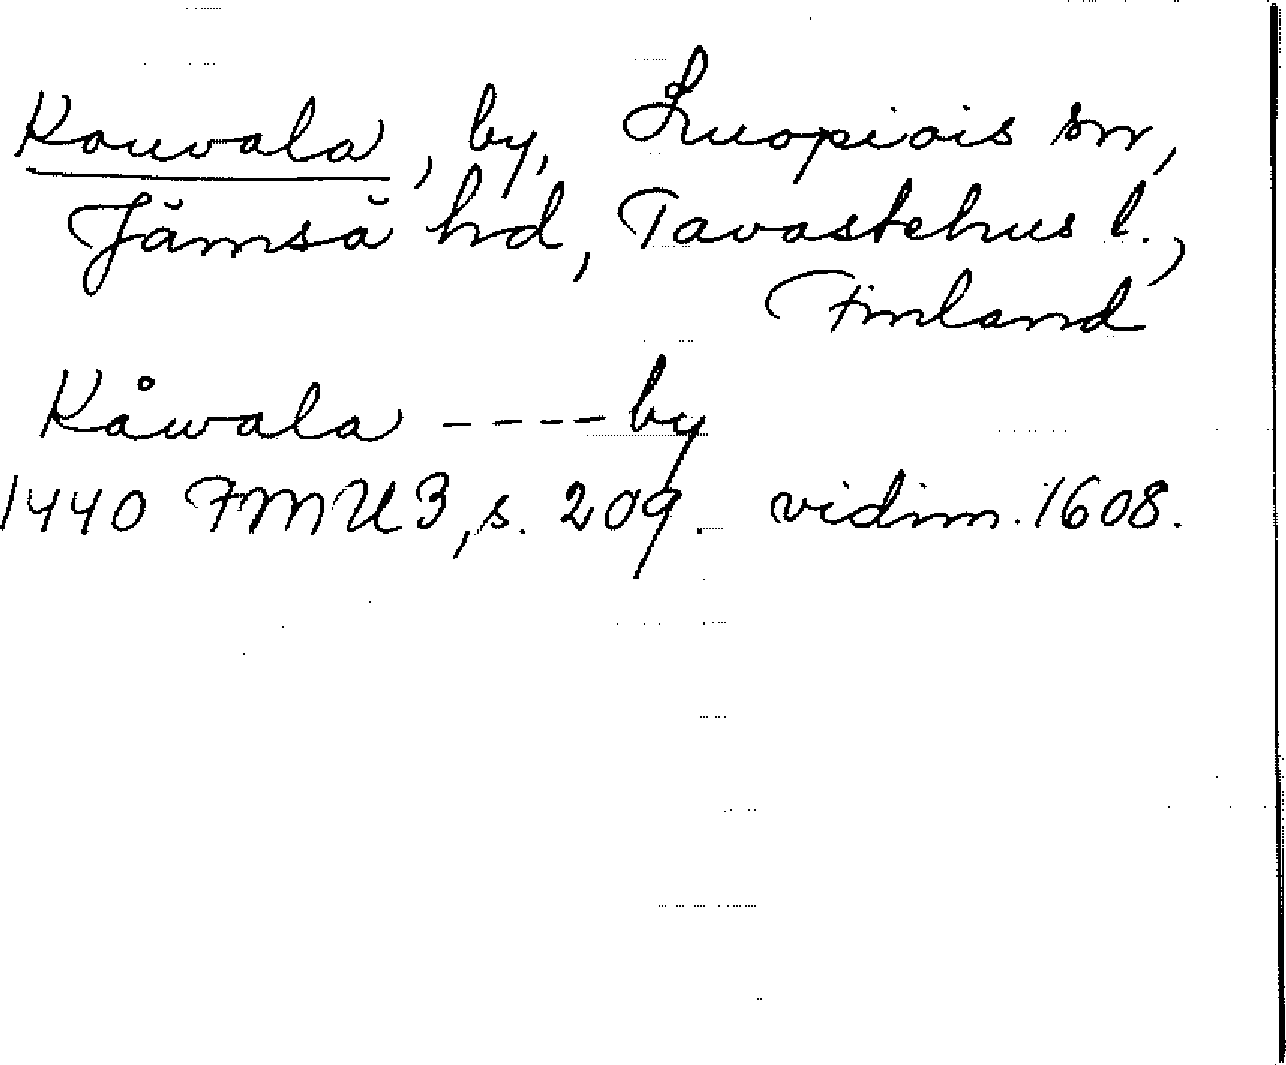 Kouvala, by, Luopiois sn,
Jämsä hd, Tavastehus l.,
Finland
Kåwala ---- by
1440 FMU 3, s. 209. vidim. 1608.